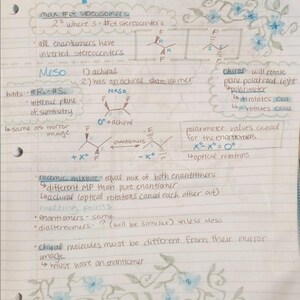 max # of stereoisomers
2ˢ where s = # of stereocenters
all enantiomers have
inverted stereocenters
Meso
1) achiral
2) has an achiral diastereomer
chiral will rotate
plane polarized light
polarimeter
hints: #R = #S,
internal plane
of symmetry
same as mirror
image
Meso
0° = achiral
enantiomers
+X°
-X°
polarimeter values cancel
for the enantiomers
X° - X° = 0°
optical rotations
racemic mixture: equal mix of both enantiomers
different MP than pure enantiomer
achiral (optical rotations cancel each other out)
melting points
enantiomers - same
diastereomers - ? (will be similar) unless meso
chiral molecules must be different from their mirror
image
must have an enantiomer